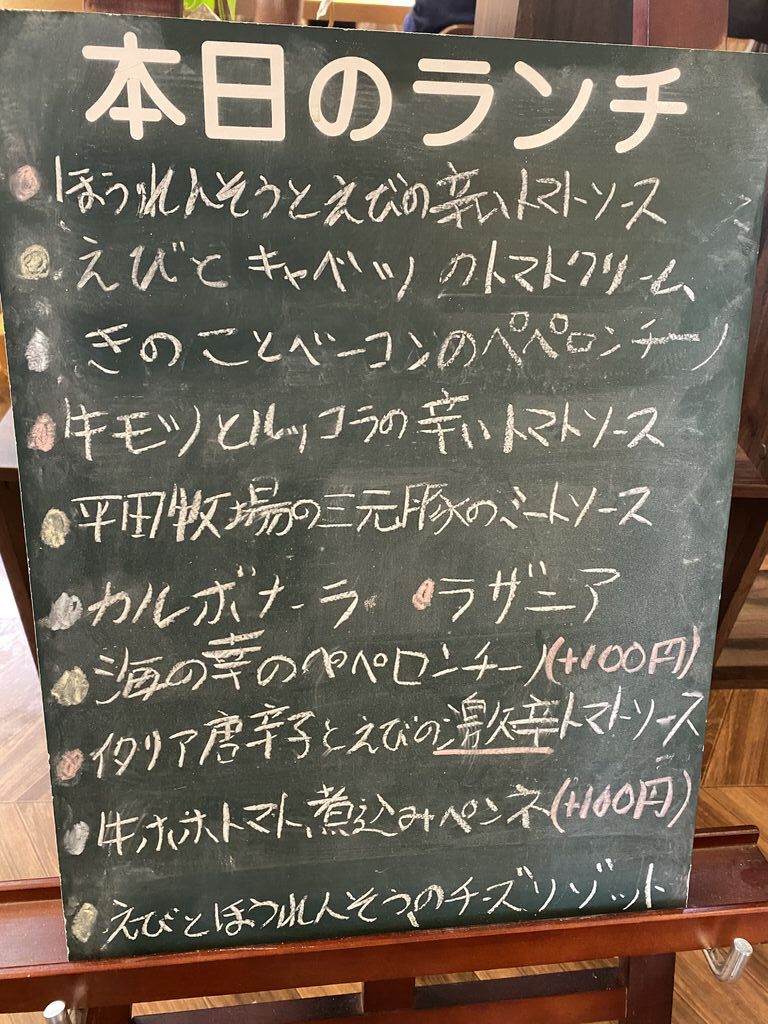 本日のランチ
ほうれんそうとえびの辛いトマトソース
えびとキャベツのトマトクリーム
きのことベーコンのペペロンチーノ
牛モツとルッコラの辛いトマトソース
平田牧場の三元豚のミートソース
カルボナーラ ラザニア
海の幸のペペロンチーノ(+100円)
イタリア唐辛子とえびの激辛トマトソース
牛ホホトマト煮込みペンネ(+100円)
えびとほうれんそうのチーズリゾット